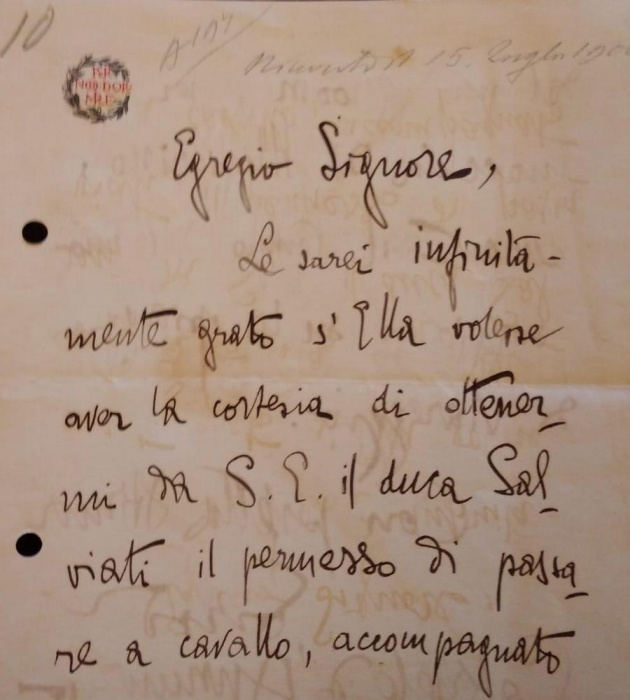 10
PER
NON DOR
MIRE
15 Luglio
Egregio Signore,
Le sarei infinita-
mente grato s'Ella volesse
aver la cortesia di ottener_
mi da S. E. il duca Sal_
viati il permesso di passa_
re a cavallo, accompagnato